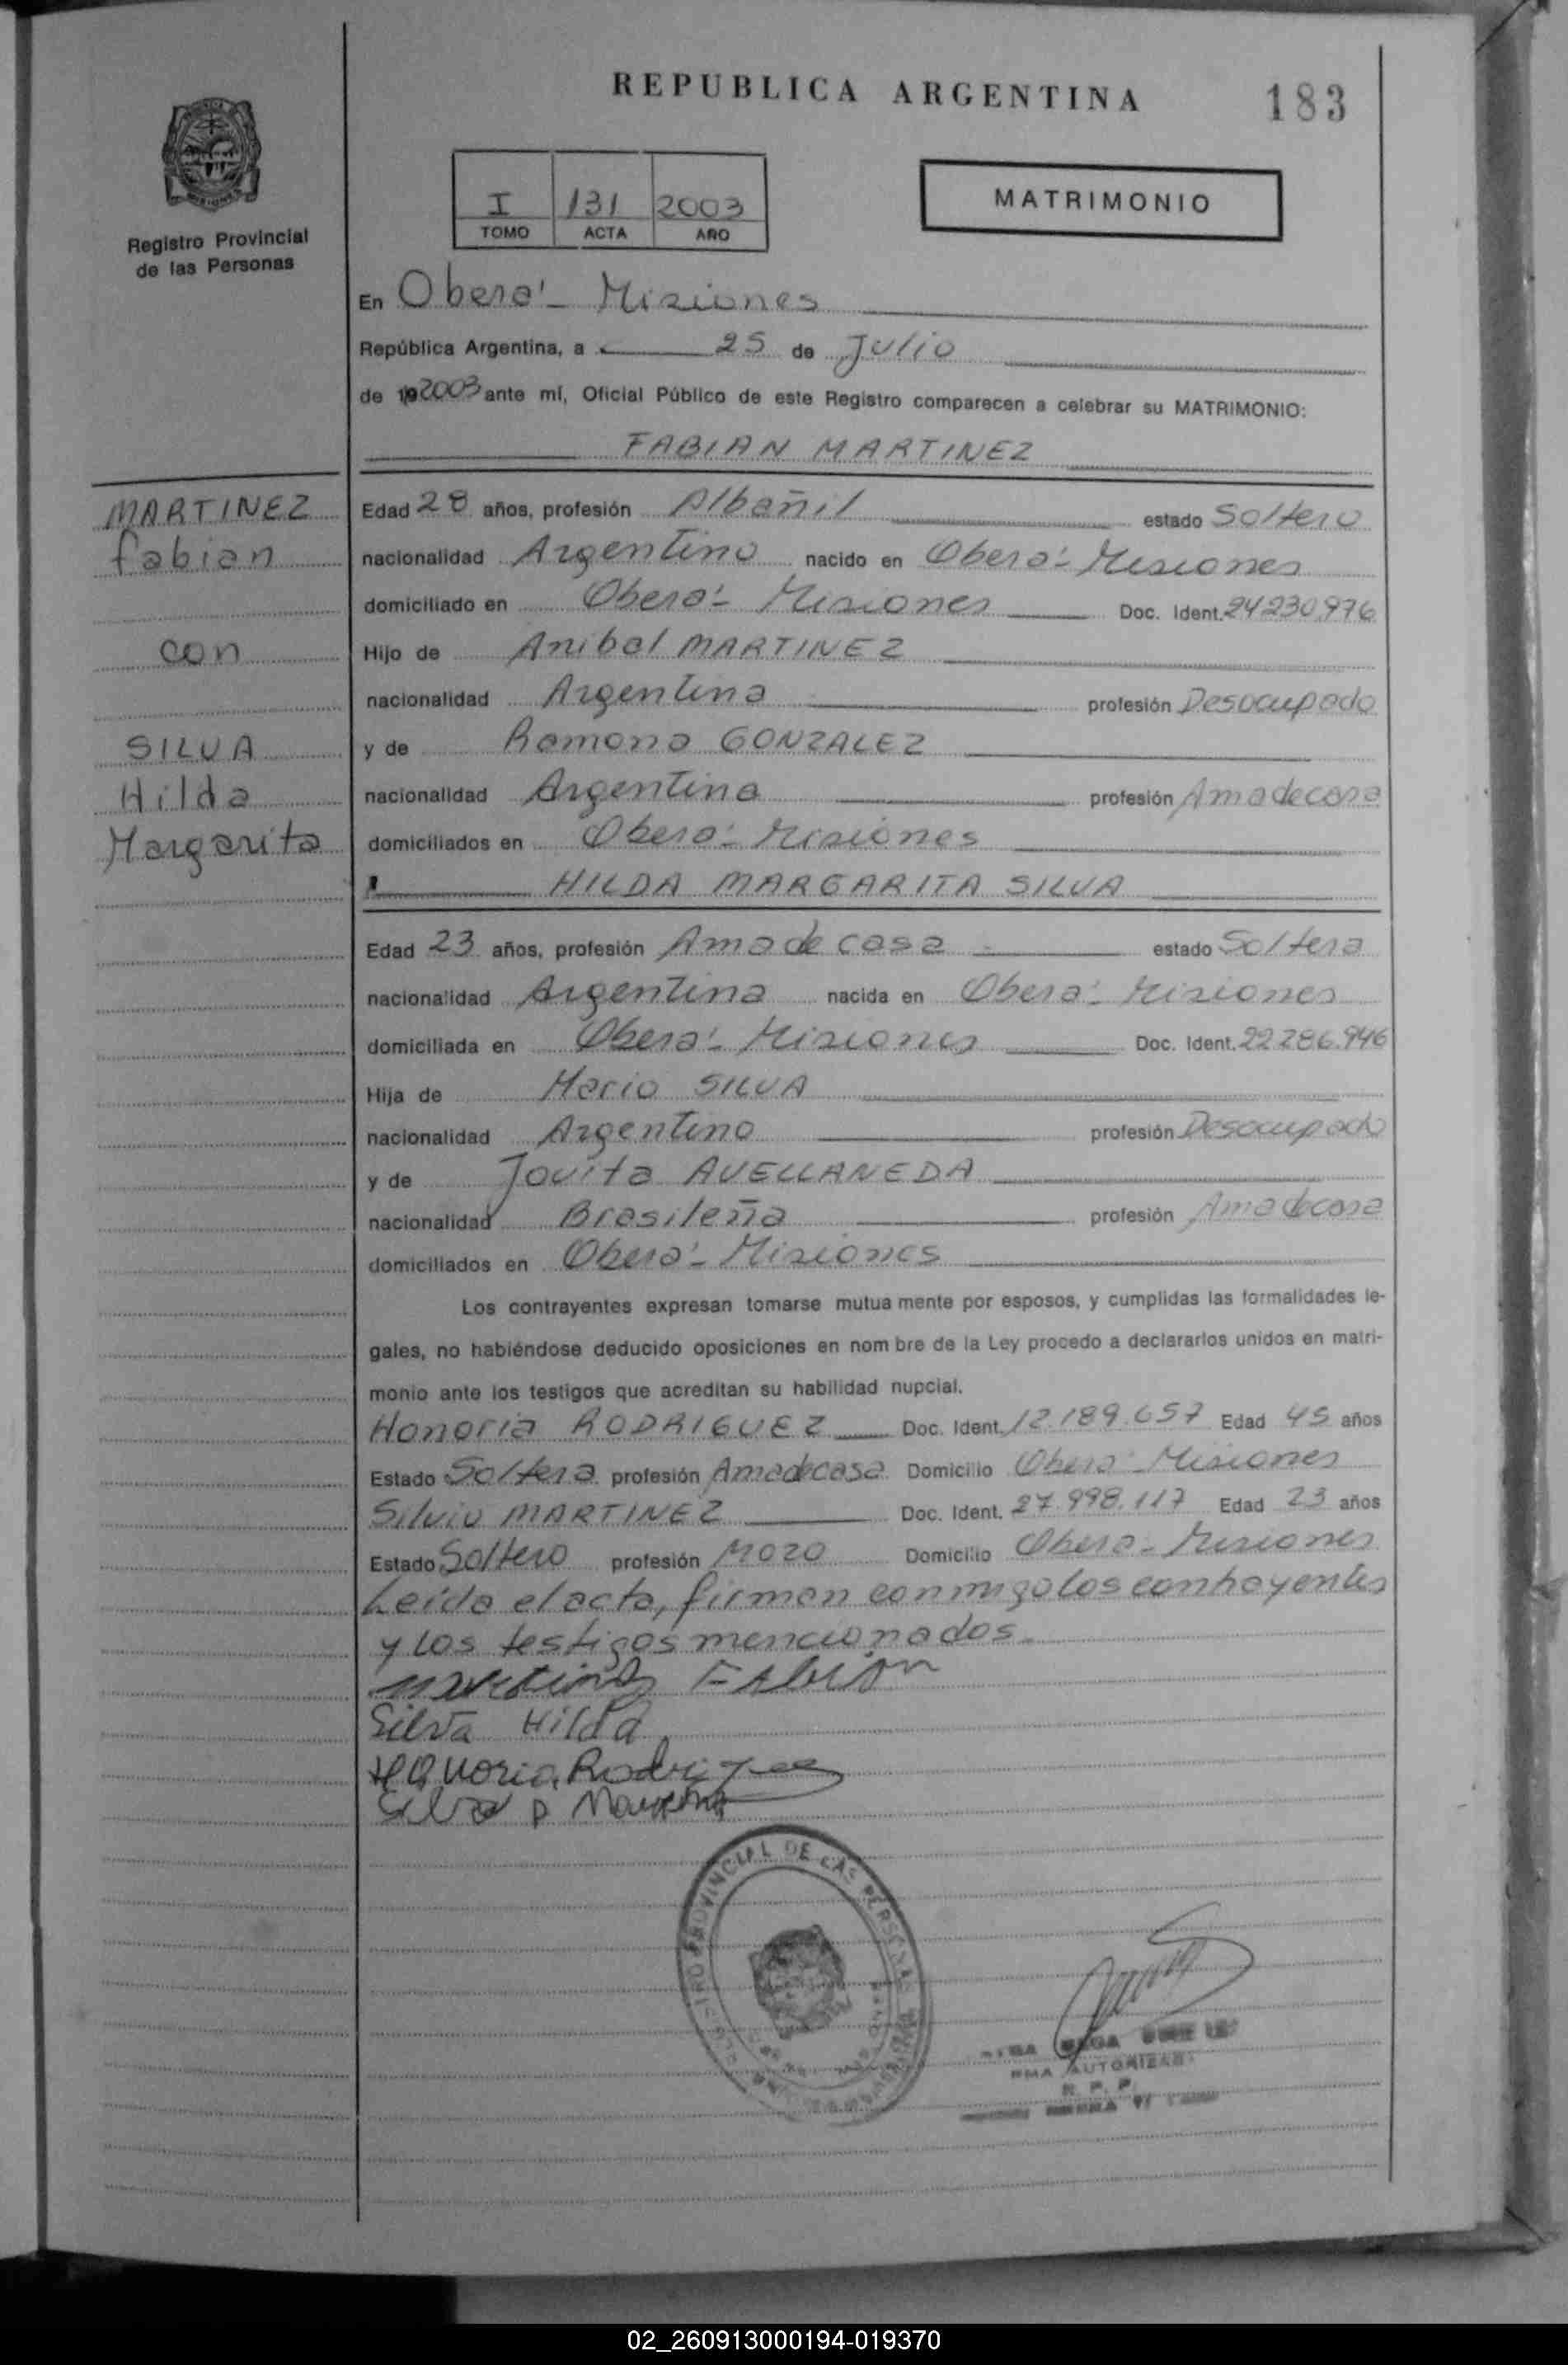 REPUBLICA ARGENTINA
183
I 131 2003
TOMO ACTA AÑO
MATRIMONIO
Registro Provincial
de las Personas
En Oberá - Misiones
República Argentina, a 25 de Julio
de 19 2003 ante mí, Oficial Público de este Registro comparecen a celebrar su MATRIMONIO:
FABIAN MARTINEZ
MARTINEZ
Fabian
con
SILVA
Hilda
Margarita
Edad 28 años, profesión Albañil estado Soltero
nacionalidad Argentino nacido en Oberá - Misiones
domiciliado en Oberá - Misiones Doc. Ident. 24.230.976
Hijo de Anibal MARTINEZ
nacionalidad Argentina profesión Desocupado
y de Ramona GONZALEZ
nacionalidad Argentina profesión Ama de casa
domiciliados en Oberá - Misiones
HILDA MARGARITA SILVA
Edad 23 años, profesión Ama de casa estado Soltera
nacionalidad Argentina nacida en Oberá - Misiones
domiciliada en Oberá - Misiones Doc. Ident. 22.286.946
Hija de Mario SILVA
nacionalidad Argentino profesión Desocupado
y de Jovita AVELLANEDA
nacionalidad Brasileña profesión Ama de casa
domiciliados en Oberá - Misiones
Los contrayentes expresan tomarse mutua mente por esposos, y cumplidas las formalidades le-
gales, no habiéndose deducido oposiciones en nom bre de la Ley procedo a declararlos unidos en matri-
monio ante los testigos que acreditan su habilidad nupcial.
Honoria RODRIGUEZ Doc. Ident. 12.189.657 Edad 45 años
Estado Soltera profesión Ama de casa Domicilio Oberá - Misiones
Silvio MARTINEZ Doc. Ident. 27.998.117 Edad 23 años
Estado Soltero profesión Mozo Domicilio Oberá - Misiones
Leída el acta, firman conmigo los contrayentes
y los testigos mencionados.
Martinez Fabian
Silva Hilda
Honoria Rodriguez
REGISTRO PROVINCIAL DE LAS PERSONAS
AUTORIZADA
R. P. P.
02_260913000194-019370